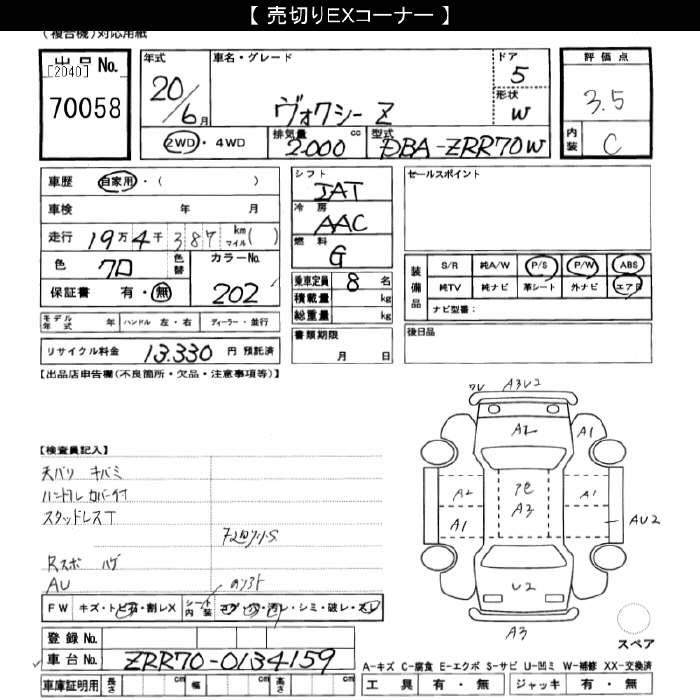 【 売切りEXコーナー 】
(複合機)対応用紙
出品 No.
[2040]
70058
年式
20/6月
車名・グレード
ヴォクシー Z
ドア
5
形状
W
評価点
3.5
内装
C
2WD・4WD
排気量 cc
2000
型式
DBA-ZRR70W
車歴 自家用・( )
車検 年 月
走行 19万4千387 km マイル( )
色 クロ
色替
カラーNo.
202
保証書 有・無
シフト
IAT
冷房
AAC
燃料
G
乗車定員 8 名
積載量 kg
総重量 kg
セールスポイント
装備品
S/R 純A/W P/S P/W ABS
純TV 純ナビ 革シート 外ナビ エアB
ナビ型番:
モデル年式 年 ハンドル 左・右 ディーラー・並行
リサイクル料金 13.330 円 預託済
書類期限
月 日
後日品
【出品店申告欄(不良箇所・欠品・注意事項等)】
【検査員記入】
天バリ キバミ
ハンドル カバー付
スタッドレスT
Rスポ ハゲ
AU
FW キズ・トビ石・割レX
シート内装
コゲ・穴・汚レ・シミ・破レ・スレ
A3U2
A2
A1
A2
A3
A1
A1
AU2
U2
A3
スペア
登録 No.
車台 No. ZRR70-0134159
車庫証明用 長さ cm 幅 cm 高さ cm
A-キズ C-腐食 E-エクボ S-サビ U-凹ミ W-補修 XX-交換済
工具 有・無 ジャッキ 有・無